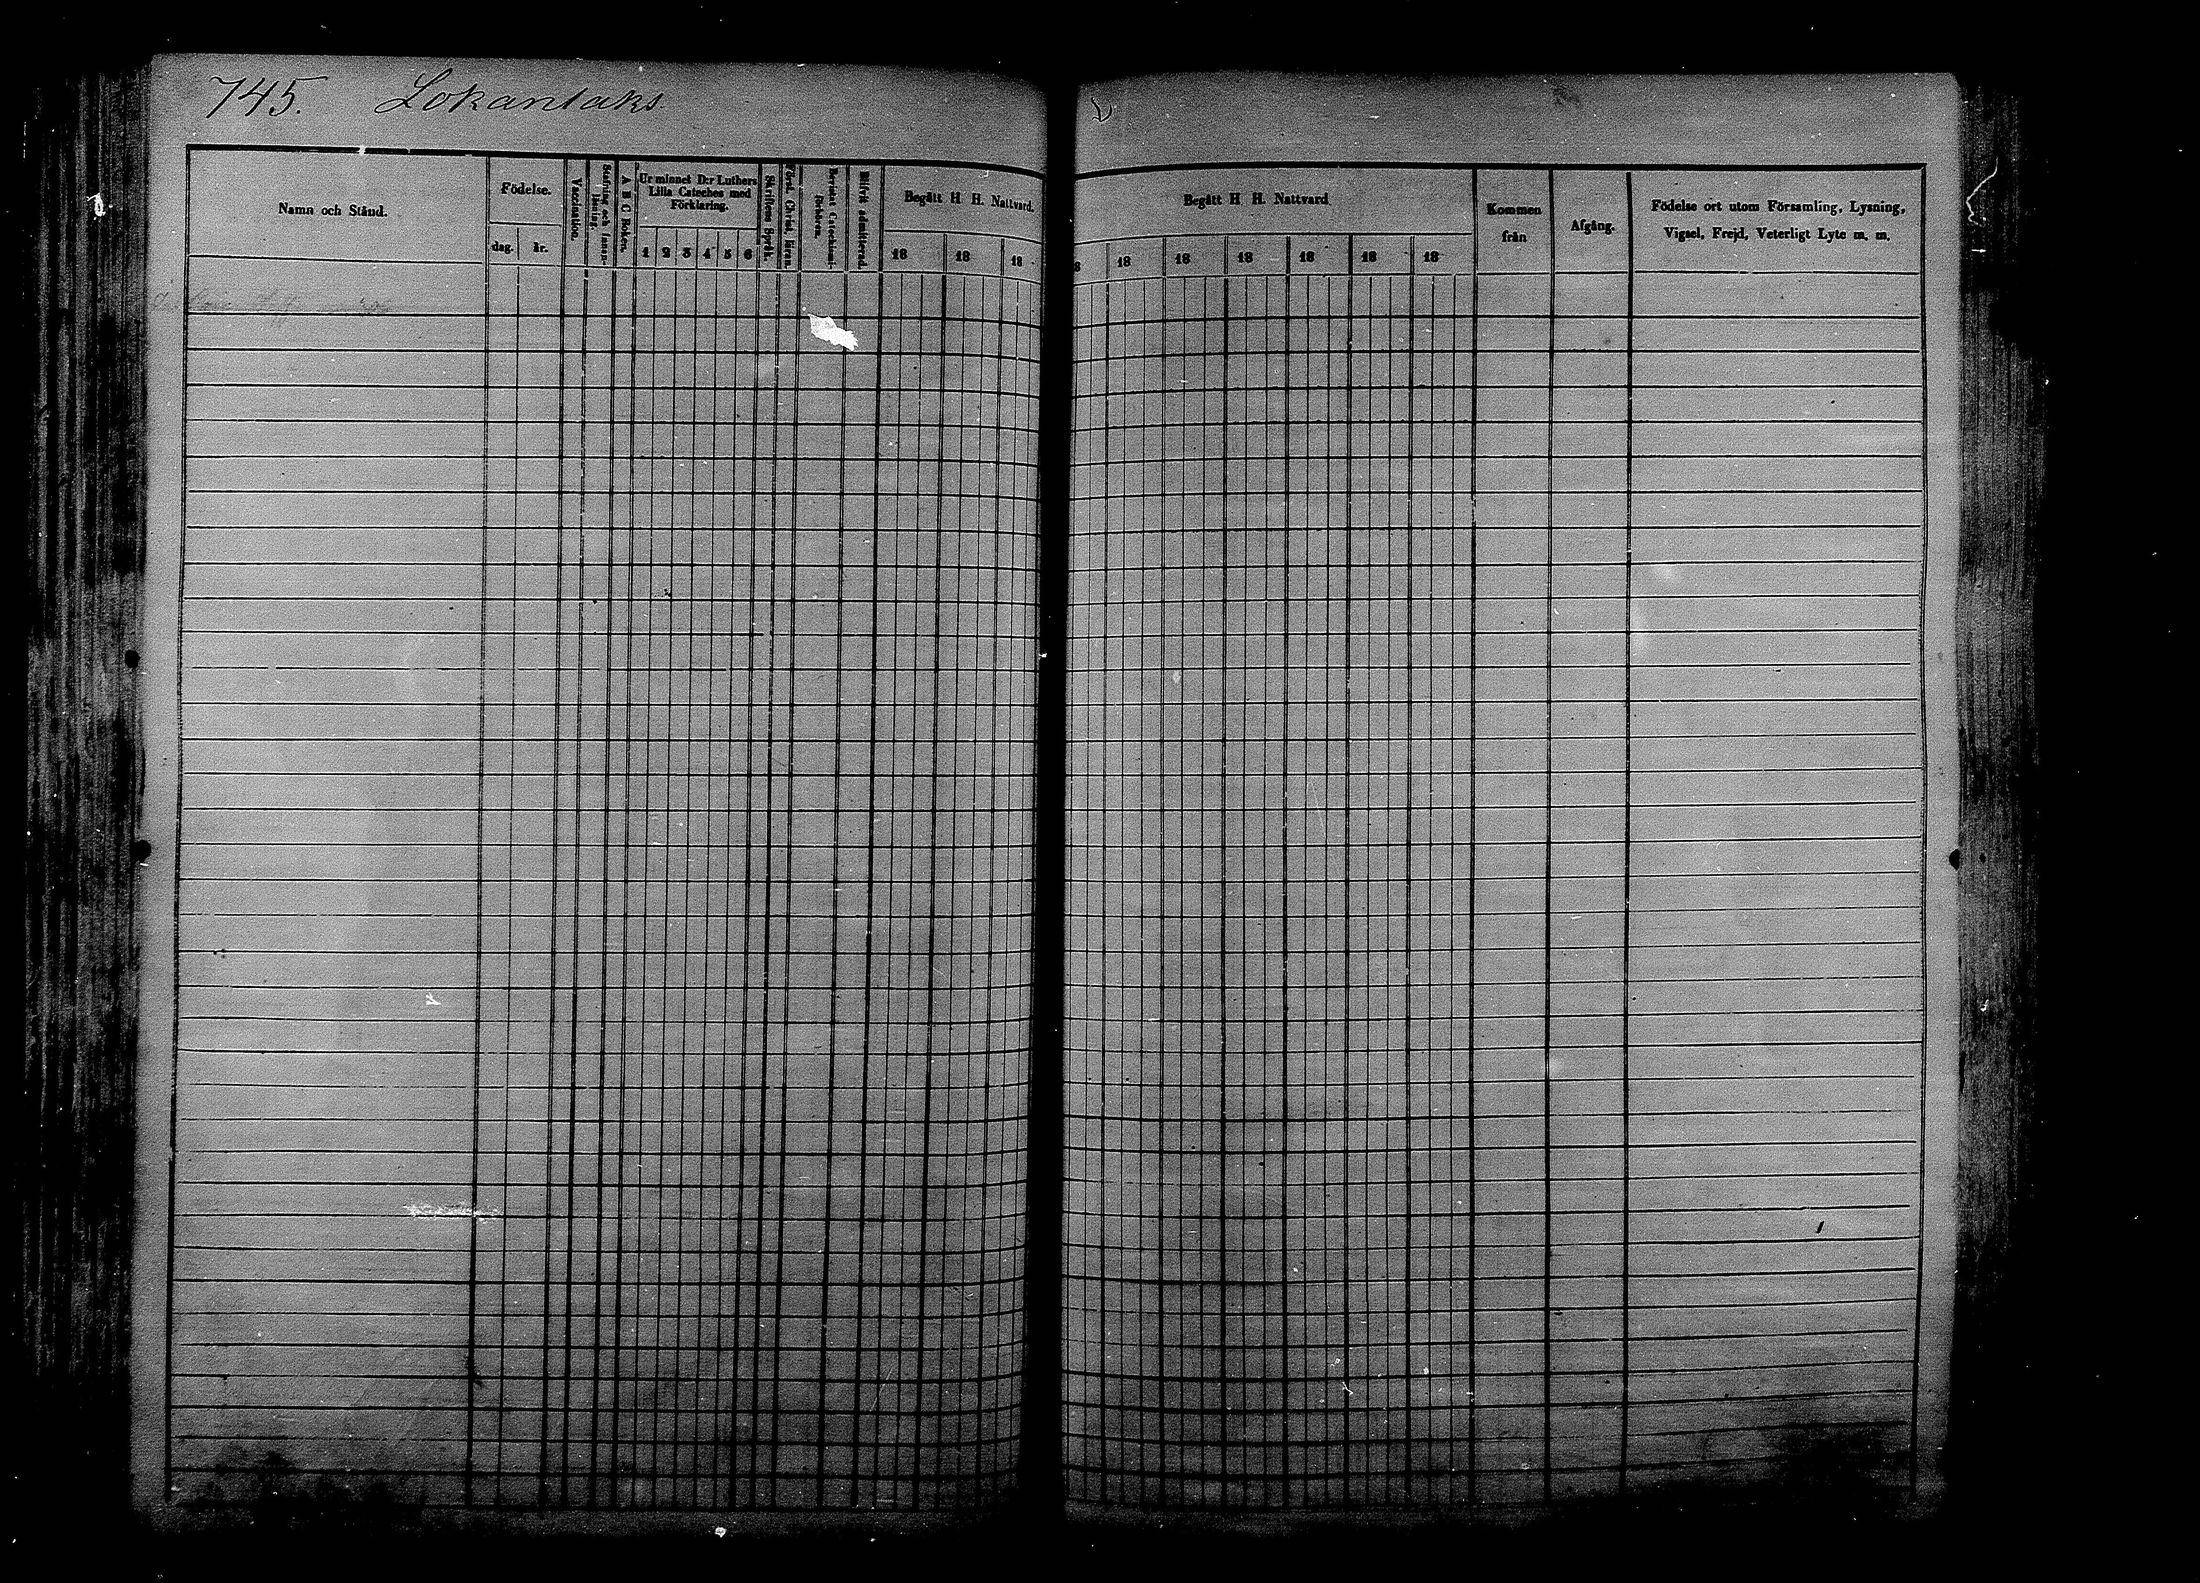 745. Lokanlaks
Namn och Stånd.
Födelse.
dag. år.
Vaccination.
Stafning och Innan-läsning.
A B C Boken.
Ur minnet D:r Luthers
Lilla Cateches med
Förklaring.
1 2 3 4 5 6
Skriftens Språk.
Först. Christ. läran.
Bevistat Catechismi-förhören.
Blifvit admitterad.
Begått H. H. Nattvard.
18 18 18
Begått H H. Nattvard
8 18 18 18 18 18 18
Kommen
från
Afgång.
Födelse ort utom Församling, Lysning,
Vigsel, Frejd, Veterligt Lyte m. m.